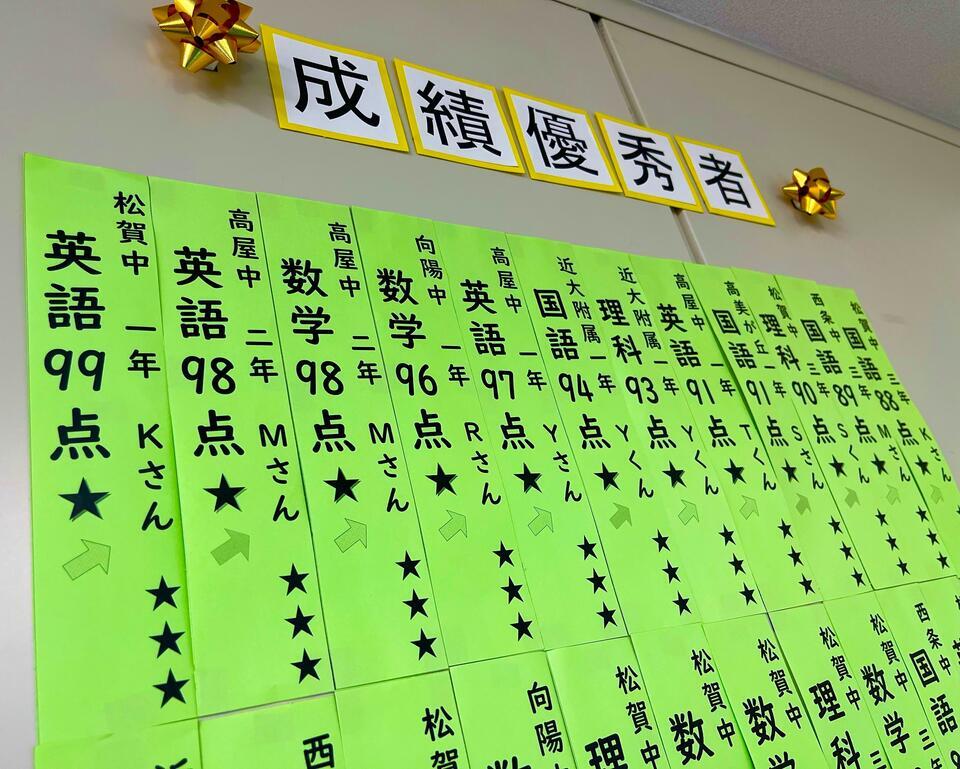 成績優秀者
松賀中 一年 Kさん ★★★
英語99点★
高屋中 二年 Mさん ★★★
英語98点★
高屋中 二年 Mさん ★★★
数学98点★
向陽中 一年 Rさん ★★★
数学96点★
高屋中 一年 Yさん ★★★
英語97点★
近大附属 一年 Yくん ★★★
国語94点★
近大附属 一年 Yくん ★★★
理科93点★
高屋中 年 Tくん ★★★
英語91点★
高美が丘 一年 Sさん ★★★
国語91点★
松賀中 三年 Sさん ★★★
理科90点★
西条中 三年 Mさん ★★★
国語89点★
松賀中 三年 Kさん ★★★
国語88点★
西
松賀
向陽
松賀中
理
松賀中
数
松賀中
数学
松賀中
理科
松賀中
数学
西条中
国語